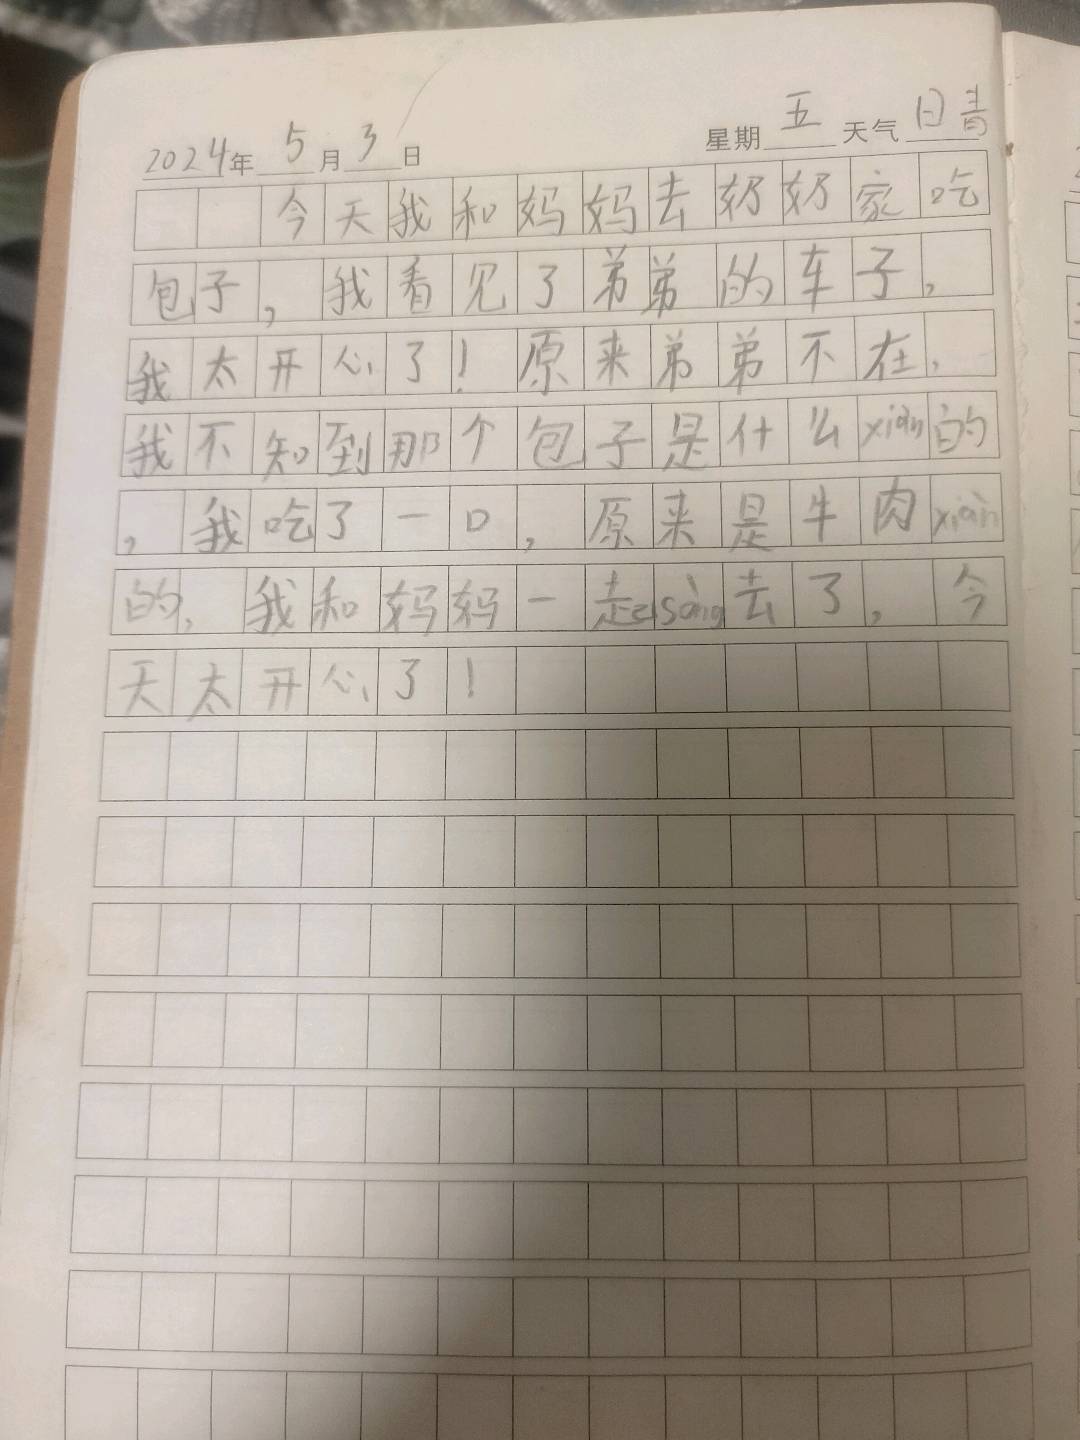 2024年5月3日 星期五天气晴
今天我和妈妈去奶奶家吃
包子，我看见了弟弟的车子，
我太开心了！原来弟弟不在，
我不知到那个包子是什么xiàn的
，我吃了一口，原来是牛肉xiàn
的，我和妈妈一起sàng去了，今
天太开心了！